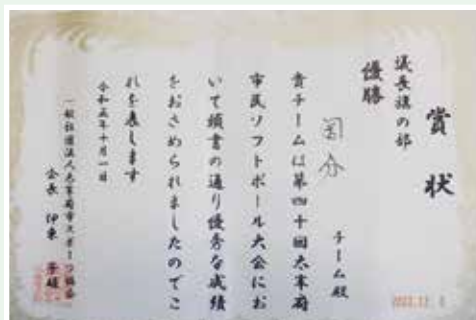 賞状
議長旗の部
優勝
国分
チーム殿
貴チームは第四十回太宰府
市民ソフトボール大会にお
いて頭書の通り優秀な成績
をおさめられましたのでこ
れを表します
令和五年十月一日
一般社団法人太宰府市スポーツ協会
会長 伊東